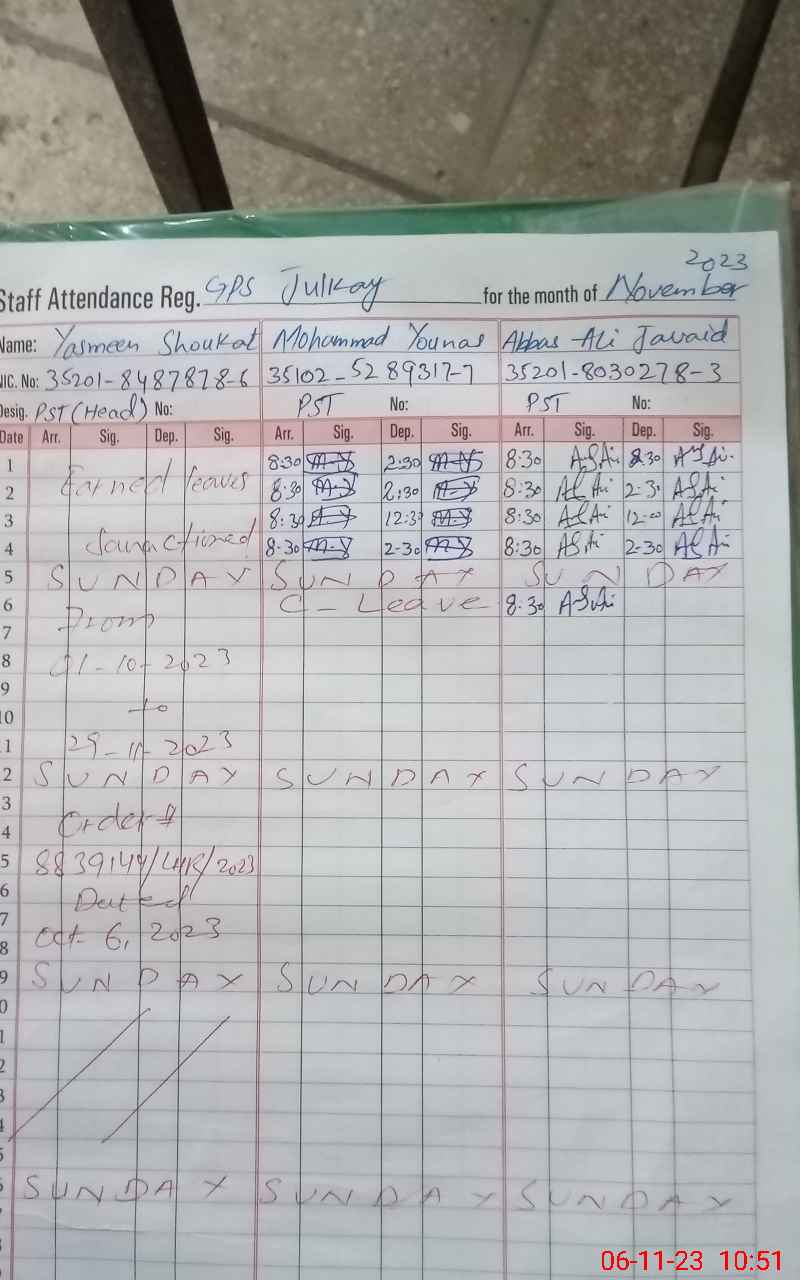 2023
Staff Attendance Reg. GPS Julkay for the month of November
Name: Yasmeen Shoukat Mohammad Younas Abbas Ali Javaid
NIC. No: 35201-8487878-6 35102-5289317-7 35201-8030278-3
Desig. PST (Head) No: PST No: PST No:
Date Arr. Sig. Dep. Sig. Arr. Sig. Dep. Sig. Arr. Sig. Dep. Sig.
1 8:30 2:30 8:30 2:30
2 Earned leaves 8:30 2:30 8:30 2:30
3 8:30 12:30 8:30 12:00
4 Sanctioned 8:30 2:30 8:30 2:30
5 SUNDAY SUNDAY SUNDAY
6 From C-Leave 8:30
7
8 01-10-2023
9
10 to
1 29-11-2023
2 SUNDAY SUNDAY SUNDAY
3
4 Order #
5 8839144/LHR/2023
6 Dated
7
8 Oct 6, 2023
9 SUNDAY SUNDAY SUNDAY
0
1
2
3
4
5
SUNDAY SUNDAY SUNDAY
06-11-23 10:51